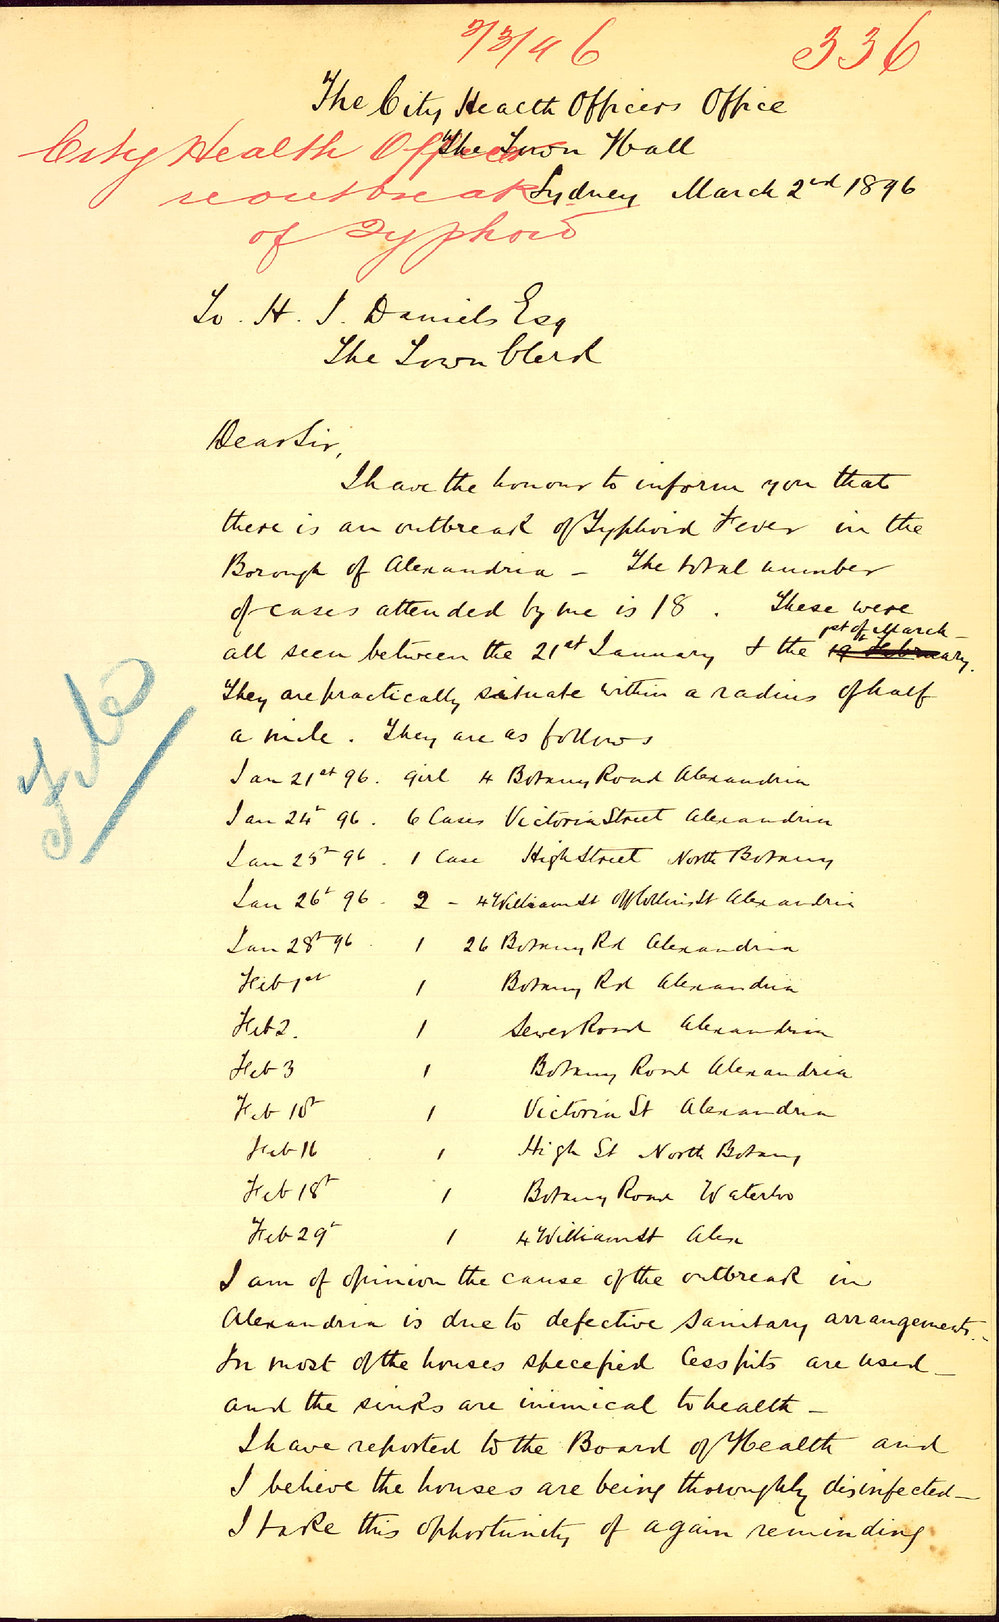 2/3/96 336
The City Health Officers Office
The Town Hall
City Health Officer
re outbreak
of Typhoid
Sydney March 2nd 1896
To. H. J. Daniels Esq
The Town Clerk
Dear Sir,
I have the honour to inform you that
there is an outbreak of Typhoid Fever in the
Borough of Alexandria - The total number
of cases attended by me is 18. These were
1st of March
all seen between the 21st January & the 19th February.
They are practically situate within a radius of half
a mile. They are as follows
Jan 21st 96. girl 4 Botany Road Alexandria
Jan 24th 96. 6 Cases Victoria Street Alexandria
Jan 25th 96. 1 Case High Street North Botany
Jan 26th 96. 2 - 4 William St off Collins St Alexandria
Jan 28th 96. 1 26 Botany Rd Alexandria
Feb 1st 1 Botany Rd Alexandria
Feb 2. 1 Sewer Road Alexandria
Feb 3 1 Botany Road Alexandria
Feb 10th 1 Victoria St Alexandria
Feb 16 1 High St North Botany
Feb 18th 1 Botany Road Waterloo
Feb 29th 1 4 William St Alex
File
I am of opinion the cause of the outbreak in
Alexandria is due to defective sanitary arrangements.-
In most of the houses specefied Cess pits are used -
and the sinks are inimical to health -
I have reported to the Board of Health and
I believe the houses are being thoroughly disinfected -
I take this opportunity of again reminding